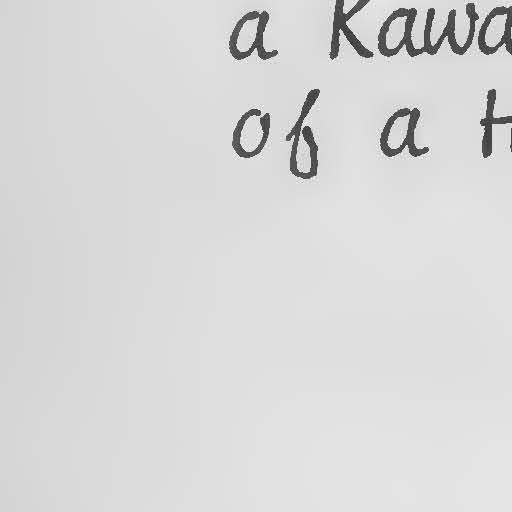 a Kawa
of a